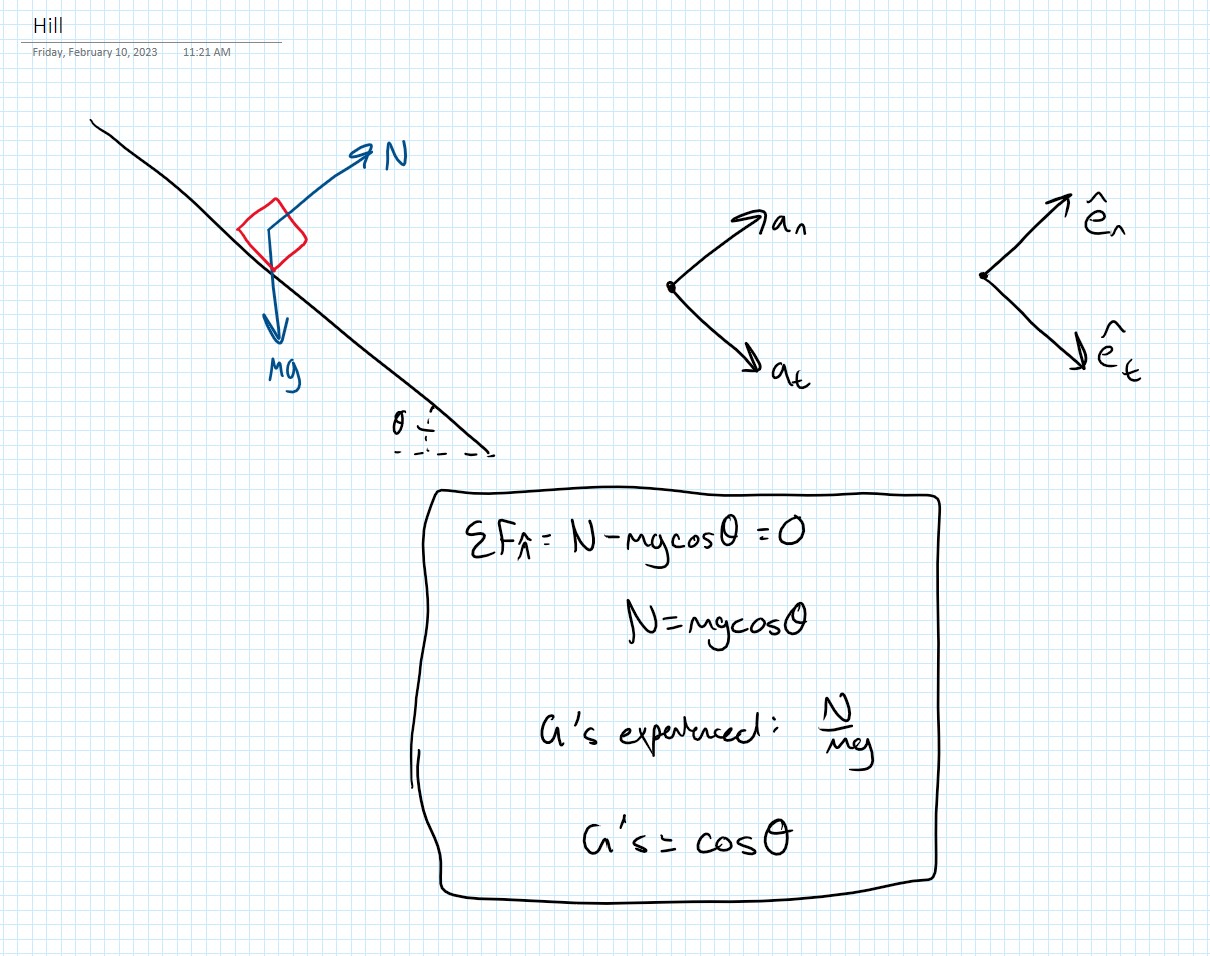 Hill
Friday, February 10, 2023 11:21 AM
N
Mg
θ
aₙ
aₜ
êₙ
êₜ
ΣFₙ̂ = N - mgcosθ = 0
N = mgcosθ
G's experienced: N/mg
G's = cosθ